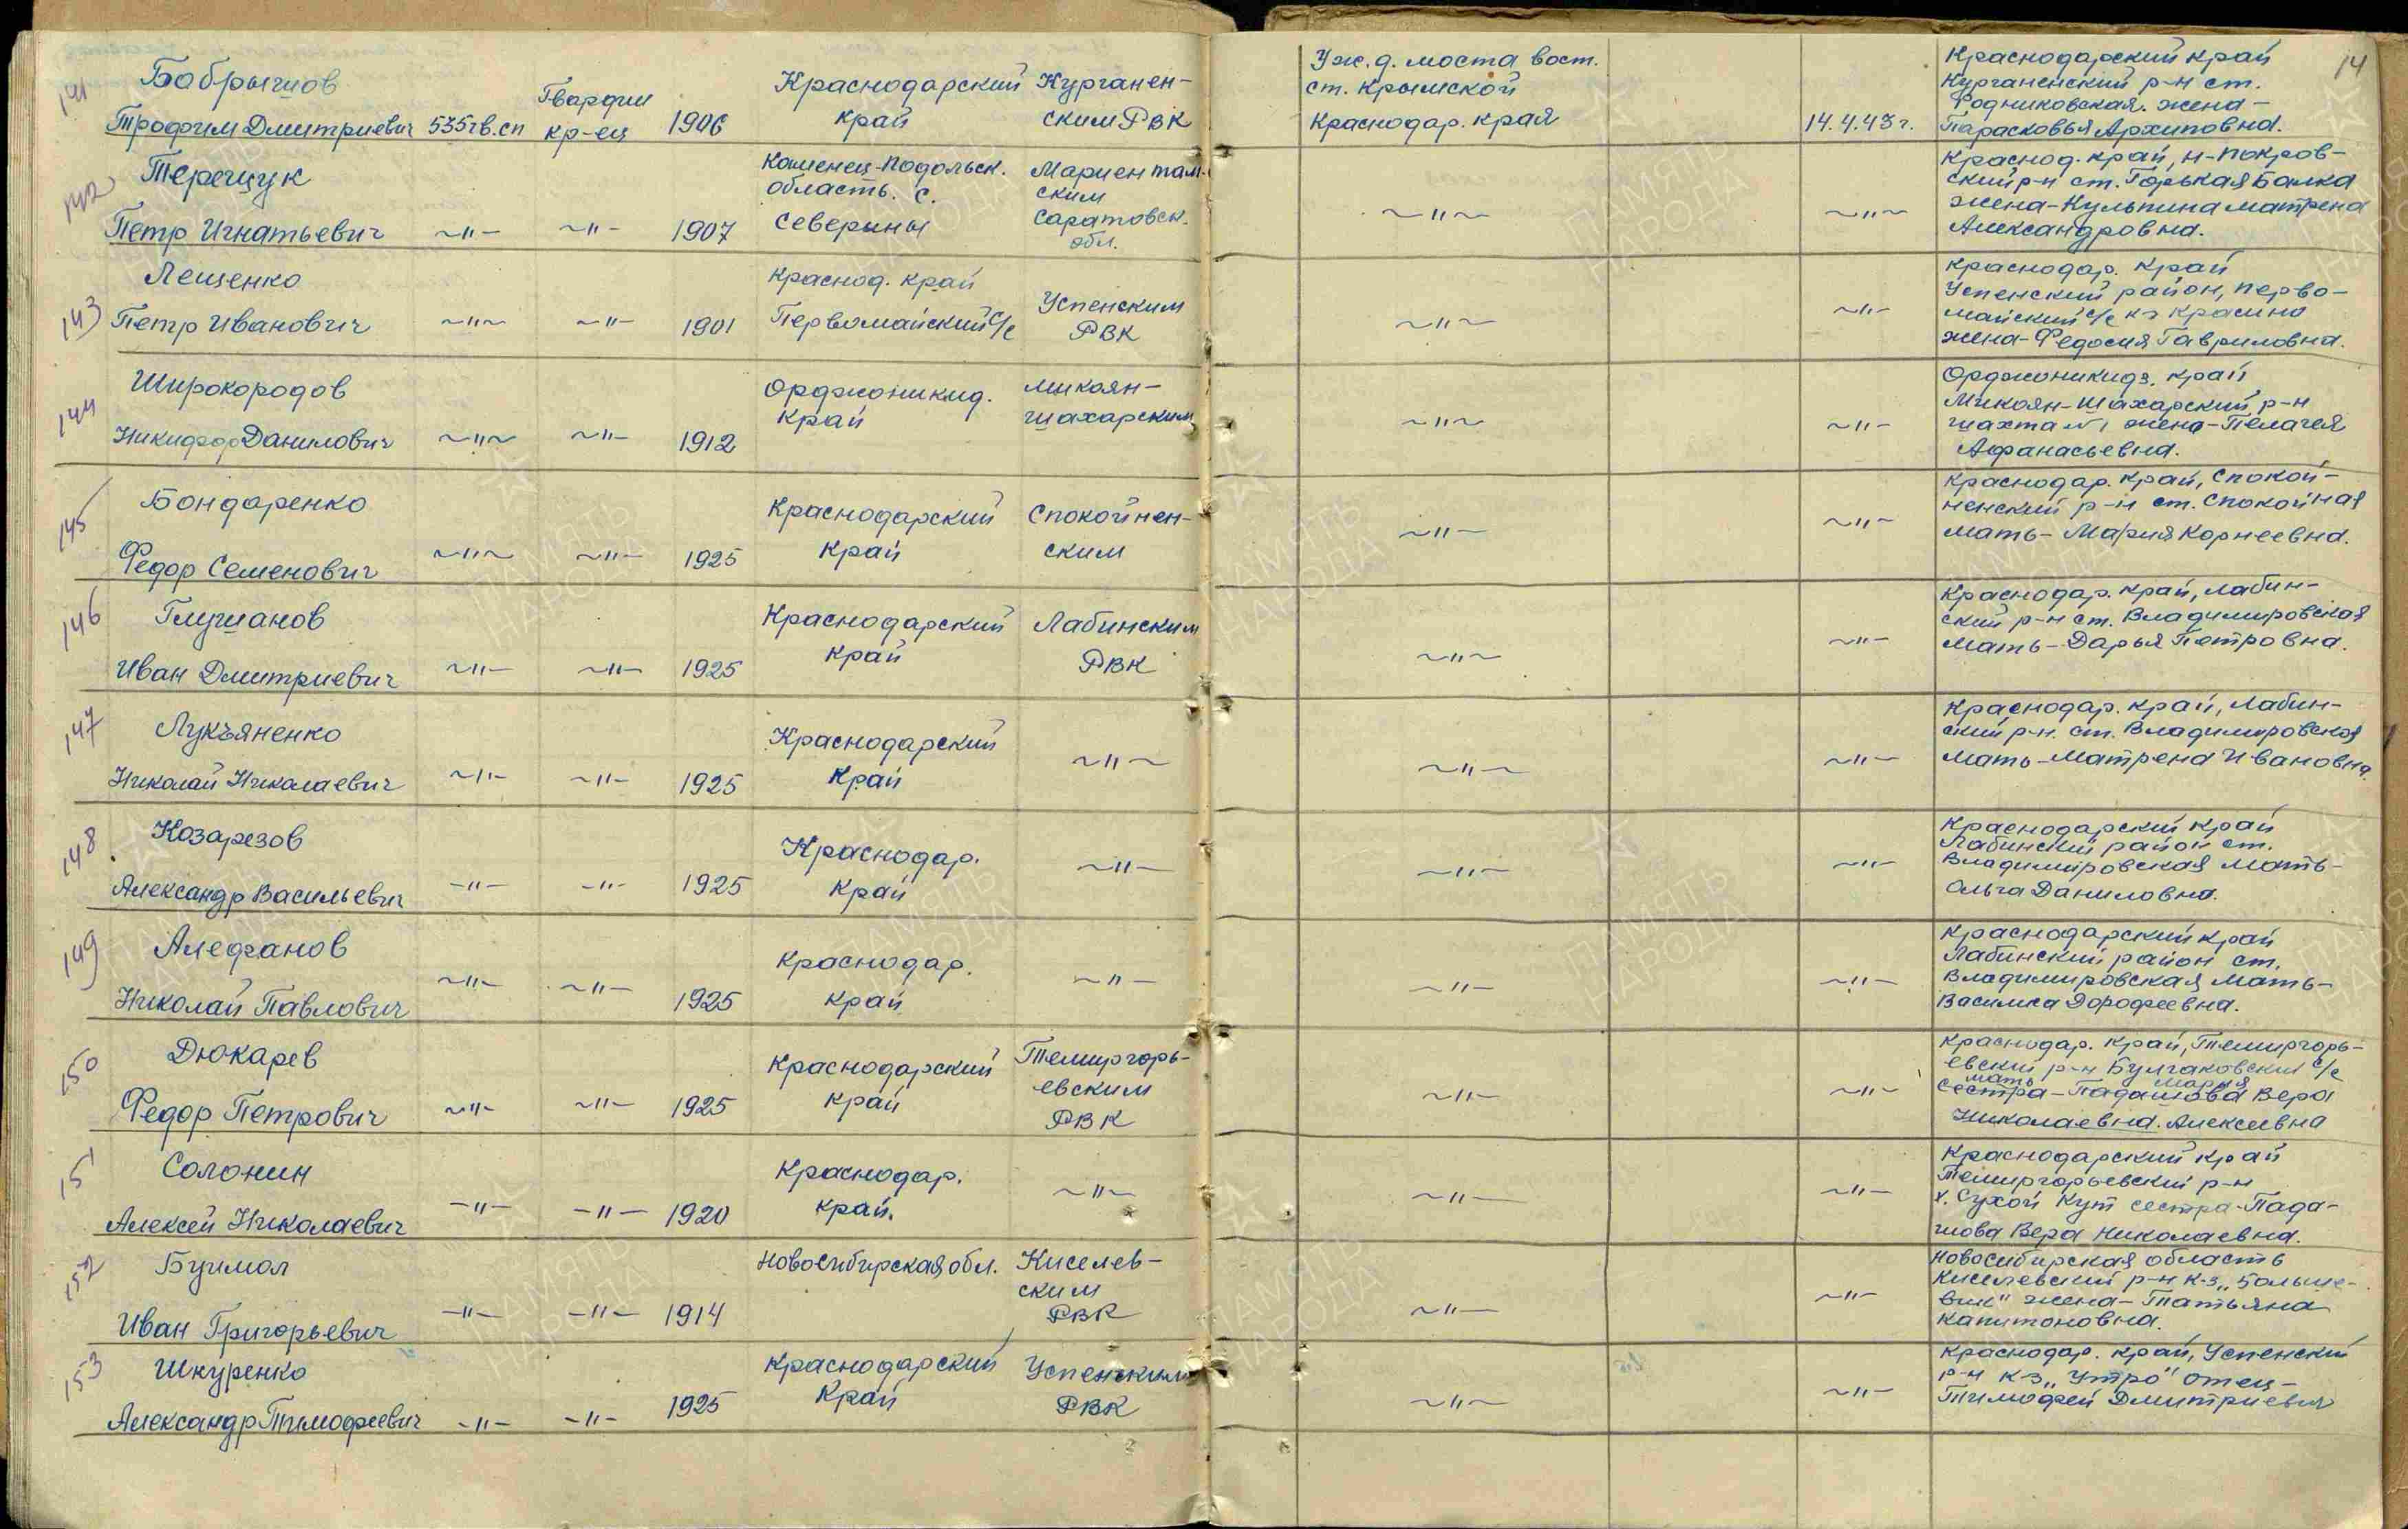 14
141
Бабрышов
Трофим Дмитриевич 535 гв. сп
Гвардии
кр-ец
1906
Краснодарский
край
Курганен-
ским РВК
У ж.д. моста вост.
ст. Крымской
Краснодар. края
14.4.43 г.
Краснодарский край
Курганенский р-н ст.
Родниковская. жена -
Парасковья Архиповна.
142
Терещук
Петр Игнатьевич
-"-
-"-
1907
Каменец-Подольск.
область. с.
Северины
Мариенталь-
ским
Саратовск.
обл.
-"-
-"-
Краснод. край, Н-Покров-
ский р-н ст. Горькая Балка
жена-Кульпина Матрена
Александровна.
143
Лещенко
Петр Иванович
-"-
-"-
1901
Краснод. край
Первомайский с/с
Успенским
РВК
-"-
-"-
Краснодар. край
Успенский район, Перво-
майский с/с к-з Красина
жена-Федосия Гавриловна.
144
Широкородов
Никифор Данилович
-"-
-"-
1912
Орджоникид.
край
Микоян-
шахарским
-"-
-"-
Орджоникидз. край
Микоян-Шахарский р-н
шахта №1 жена-Пелагея
Афанасьевна.
145
Бондаренко
Федор Семенович
-"-
-"-
1925
Краснодарский
край
Спокойнен-
ским
-"-
-"-
Краснодар. край, Спокой-
ненский р-н ст. Спокойная
Мать - Мария Корнеевна.
146
Глушанов
Иван Дмитриевич
-"-
-"-
1925
Краснодарский
край
Лабинским
РВК
-"-
-"-
Краснодар. край, Лабин-
ский р-н ст. Владимировская
Мать - Дарья Петровна.
147
Лукъяненко
Николай Николаевич
-"-
-"-
1925
Краснодарский
край
-"-
-"-
-"-
Краснодар. край, Лабин-
ский р-н. ст. Владимировская
Мать - Матрена Ивановна.
148
Козарезов
Александр Васильевич
-"-
-"-
1925
Краснодар.
край
-"-
-"-
-"-
Краснодарский край
Лабинский район ст.
Владимировская Мать-
Ольга Даниловна.
149
Алефанов
Николай Павлович
-"-
-"-
1925
Краснодар.
край
-"-
-"-
-"-
Краснодарский край
Лабинский район ст.
Владимировская Мать-
Василиса Дорофеевна.
150
Дюкарев
Федор Петрович
-"-
-"-
1925
Краснодарский
край
Темиргорь-
евским
РВК
-"-
-"-
Краснодар. край, Темиргорь-
евский р-н Булгаковский с/с
мать Мария
Сестра - Падашова Вера
Николаевна. Алексеевна
151
Солонин
Алексей Николаевич
-"-
-"-
1920
Краснодар.
край.
-"-
-"-
-"-
Краснодарский край
Темиргорьевский р-н
х. Сухой Кут сестра-Пада-
шова Вера Николаевна.
152
Буимол
Иван Григорьевич
-"-
-"-
1914
Новосибирская обл.
Киселев-
ским
РВК
-"-
-"-
Новосибирская область
Киселевский р-н к-з „Больше-
вик" жена - Татьяна
Капитоновна.
153
Шкуренко
Александр Тимофеевич
-"-
-"-
1925
Краснодарский
край
Успенским
РВК
-"-
-"-
Краснодар. край, Успенский
р-н к-з „Утро" отец-
Тимофей Дмитриевич
ПАМЯТЬ
НАРОДА